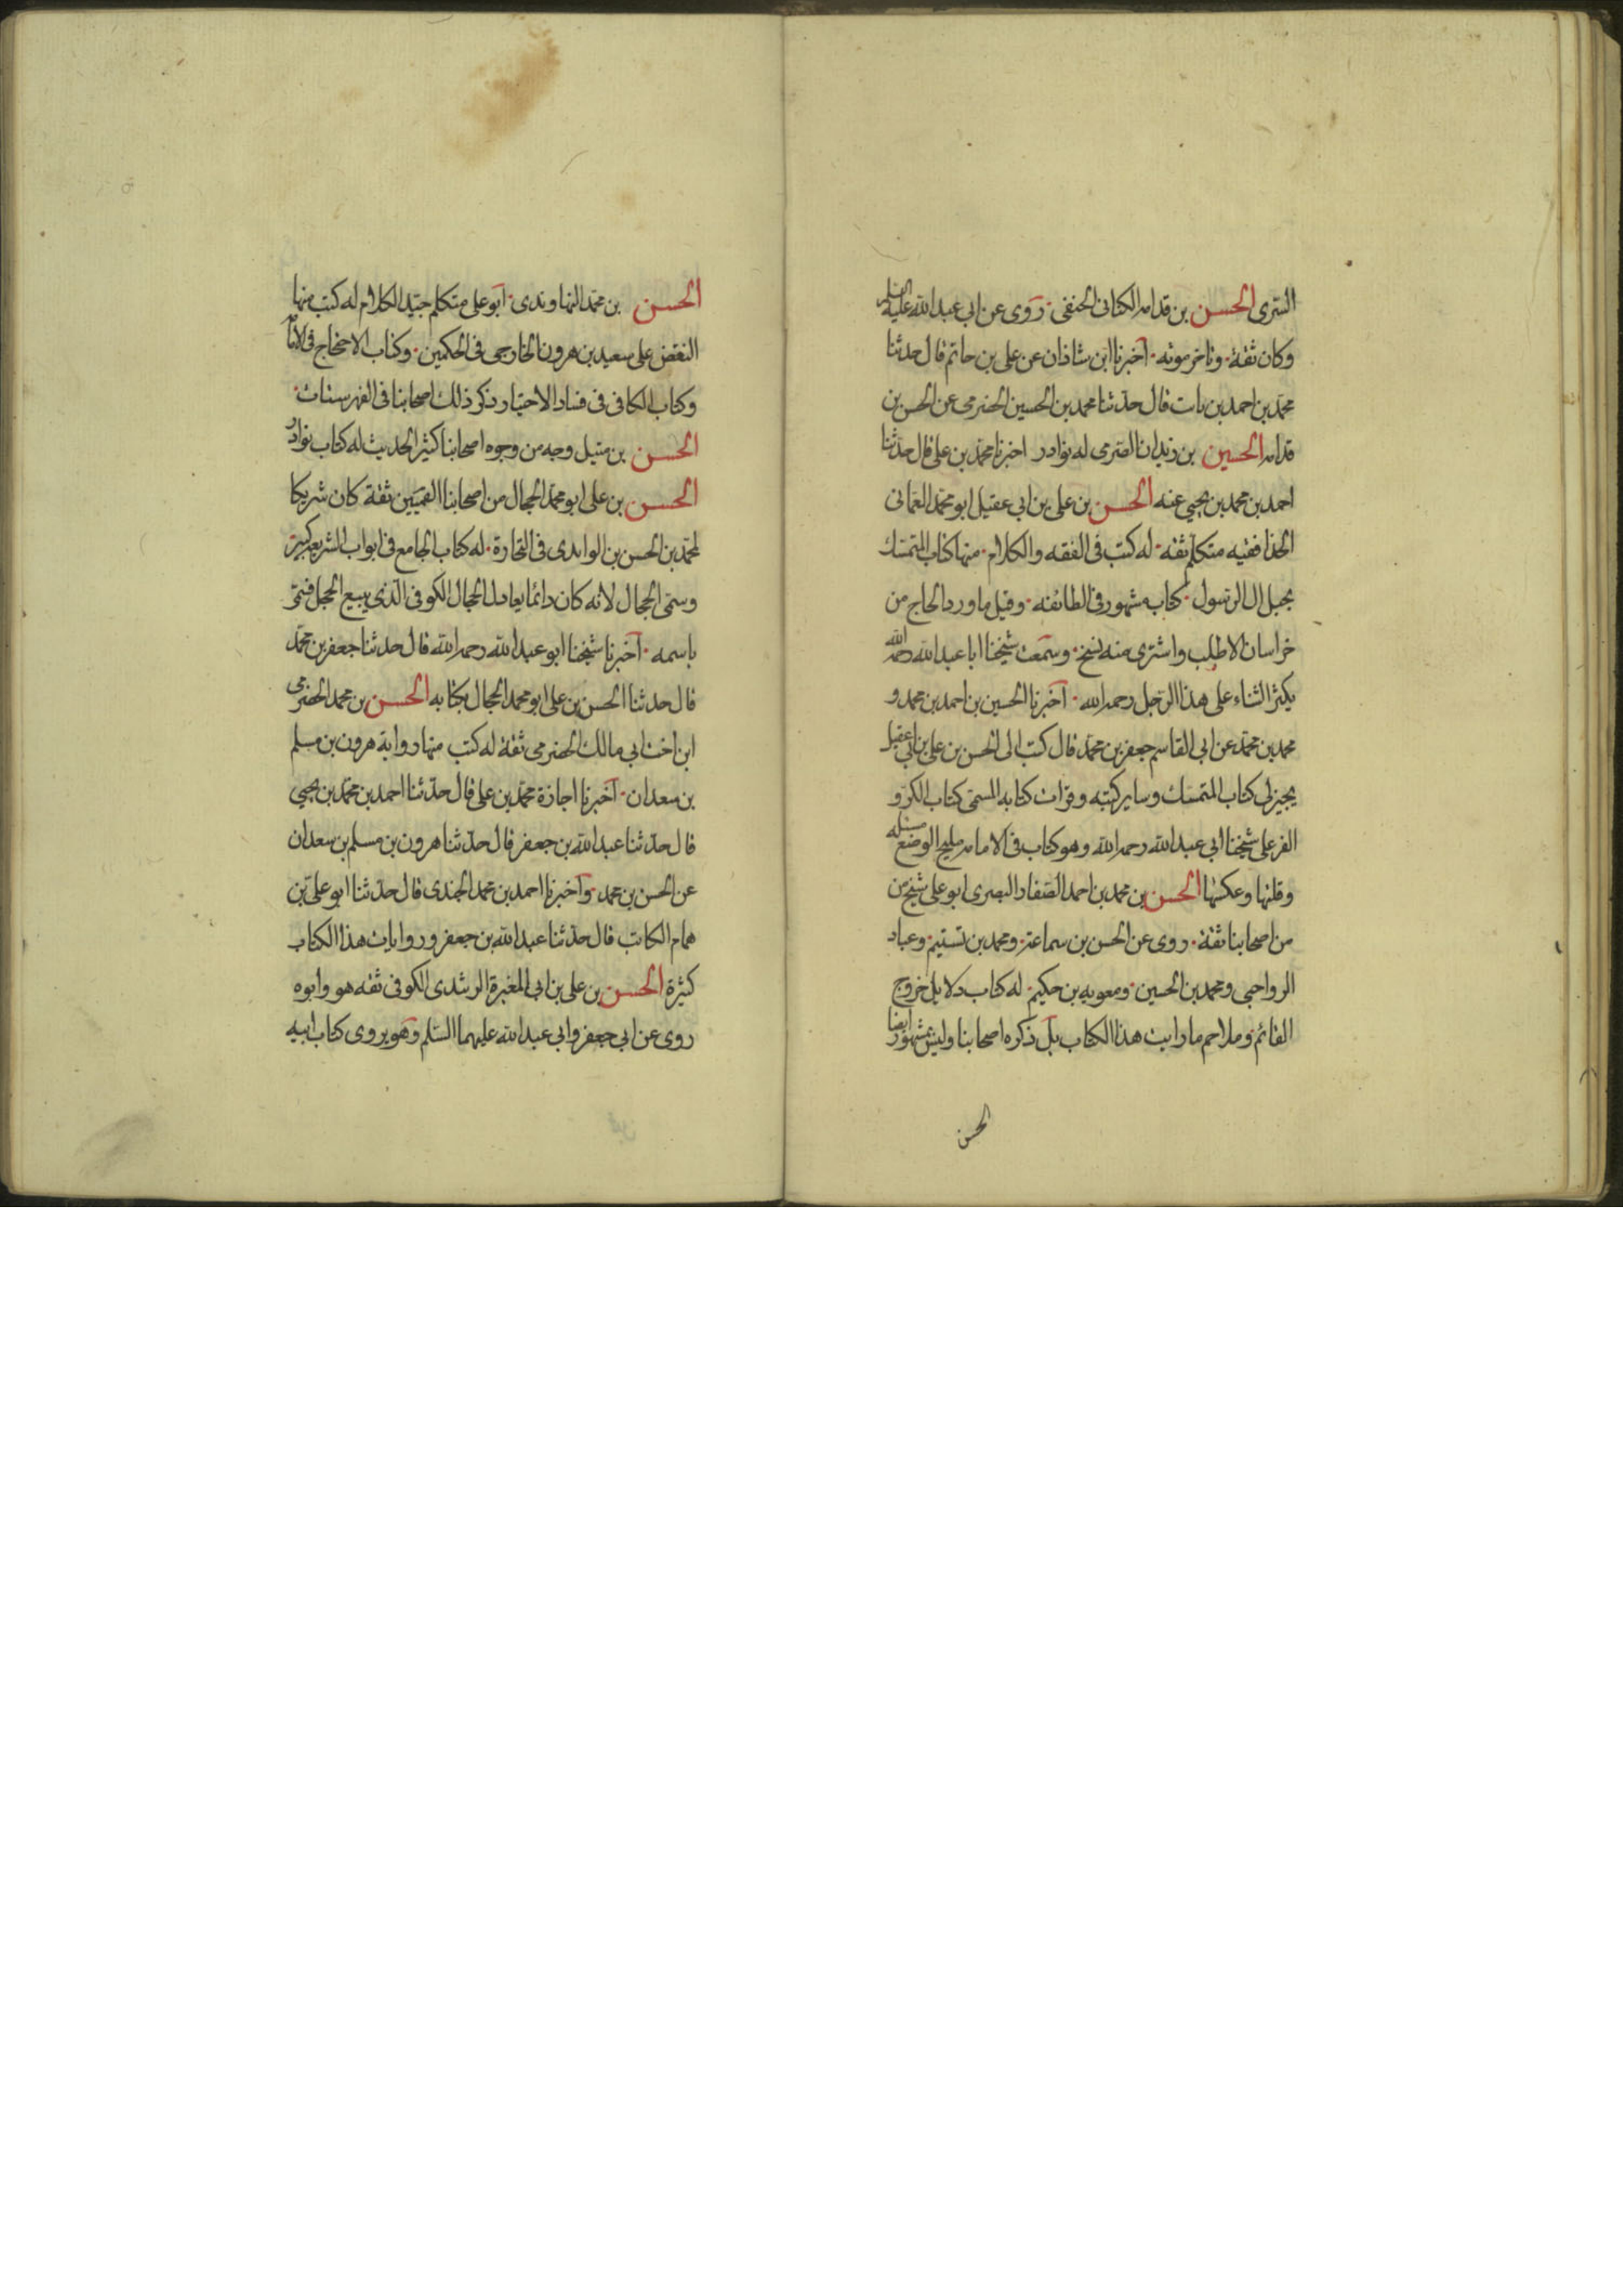 السرى الحسن بن قدامه الكنانى الحنفى روى عن ابى عبد الله عليه السلم
وكان ثقة وتاخر موته اخبرنا ابن شاذان عن على بن حاتم قال حدثنا
محمد بن احمد بن ثابت قال حدثنا محمد بن الحسين الحضرمى عن الحسن بن
قدامه الحسين بن زيدان الصرمى له نوادر اخبرنا محمد بن على قال حدثنا
احمد بن محمد بن يحيى عنه الحسن بن على بن ابى عقيل ابو محمد العمانى
الحذا فقيه متكلم ثقة له كتب فى الفقه والكلام منها كتاب المتمسك
بحبل ال الرسول كتاب مشهور فى الطائفه وقيل ما ورد الحاج من
خراسان الا طلب واشترى منه نسخ وسمعت شيخنا ابا عبد الله رحمه الله
يكثر الثناء على هذا الرجل رحمه الله اخبرنا الحسين بن احمد بن محمد و
محمد بن محمد عن ابى القاسم جعفر بن محمد قال كتب الى الحسن بن على بن ابى عقيل
يجيز لى كتاب المتمسك وساير كتبه وقرات كتابه المسمى كتاب الكر و
الفر على شيخنا ابى عبد الله رحمه الله وهو كتاب فى الامامه مليح الوضع مسئله
وقلبها وعكسها الحسن بن محمد بن احمد الصفار البصرى ابو على شيخ من
من اصحابنا ثقة روى عن الحسن بن سماعة ومحمد بن تسنيم وعباد
الرواجنى ومحمد بن الحسين ومعويه بن حكيم له كتاب دلايل خروج
القائم وملاحم ما رايت هذا الكتاب بل ذكره اصحابنا وليس بمشهور ايضا
الحسن
الحسن بن محمد النهاوندى ابو على متكلم جيد الكلام له كتب منها
النقض على سعيد بن هرون الخارجى فى الحكمين وكتاب الاحتجاج فى الامامة
وكتاب الكافى فى فساد الاختيار ذكر ذلك اصحابنا فى الفهرستات
الحسن بن متيل وجه من وجوه اصحابنا كثير الحديث له كتاب نوادر
الحسن بن على ابو محمد الحجال من اصحابنا القميين ثقة كان شريكا
لمحمد بن الحسن بن الوليد فى التجارة له كتاب الجامع فى ابواب الشريعه كبير
وسمى الحجال لانه كان دائما يعادل الحجال الكوفى الذى يبيع الحجل فسمى
باسمه اخبرنا شيخنا ابو عبد الله رحمه الله قال حدثنا جعفر بن محمد
قال حدثنا الحسن بن على ابو محمد الحجال بكتابه الحسن بن محمد الحضرمى
ابن اخت ابى مالك الحضرمى ثقة له كتب منها رواية هرون بن مسلم
بن سعدان اخبرنا اجازة محمد بن على قال حدثنا احمد بن محمد بن يحيى
قال حدثنا عبد الله بن جعفر قال حدثنا هرون بن مسلم بن سعدان
عن الحسن بن محمد واخبرنا احمد بن محمد الجندى قال حدثنا ابو على بن
همام الكاتب قال حدثنا عبد الله بن جعفر وروايات هذا الكتاب
كثيرة الحسن بن على بن ابى المغيرة الرشدى الكوفى ثقه هو وابوه
روى عن ابى جعفر وابى عبد الله عليهما السلم وهو يروى كتاب ابيه